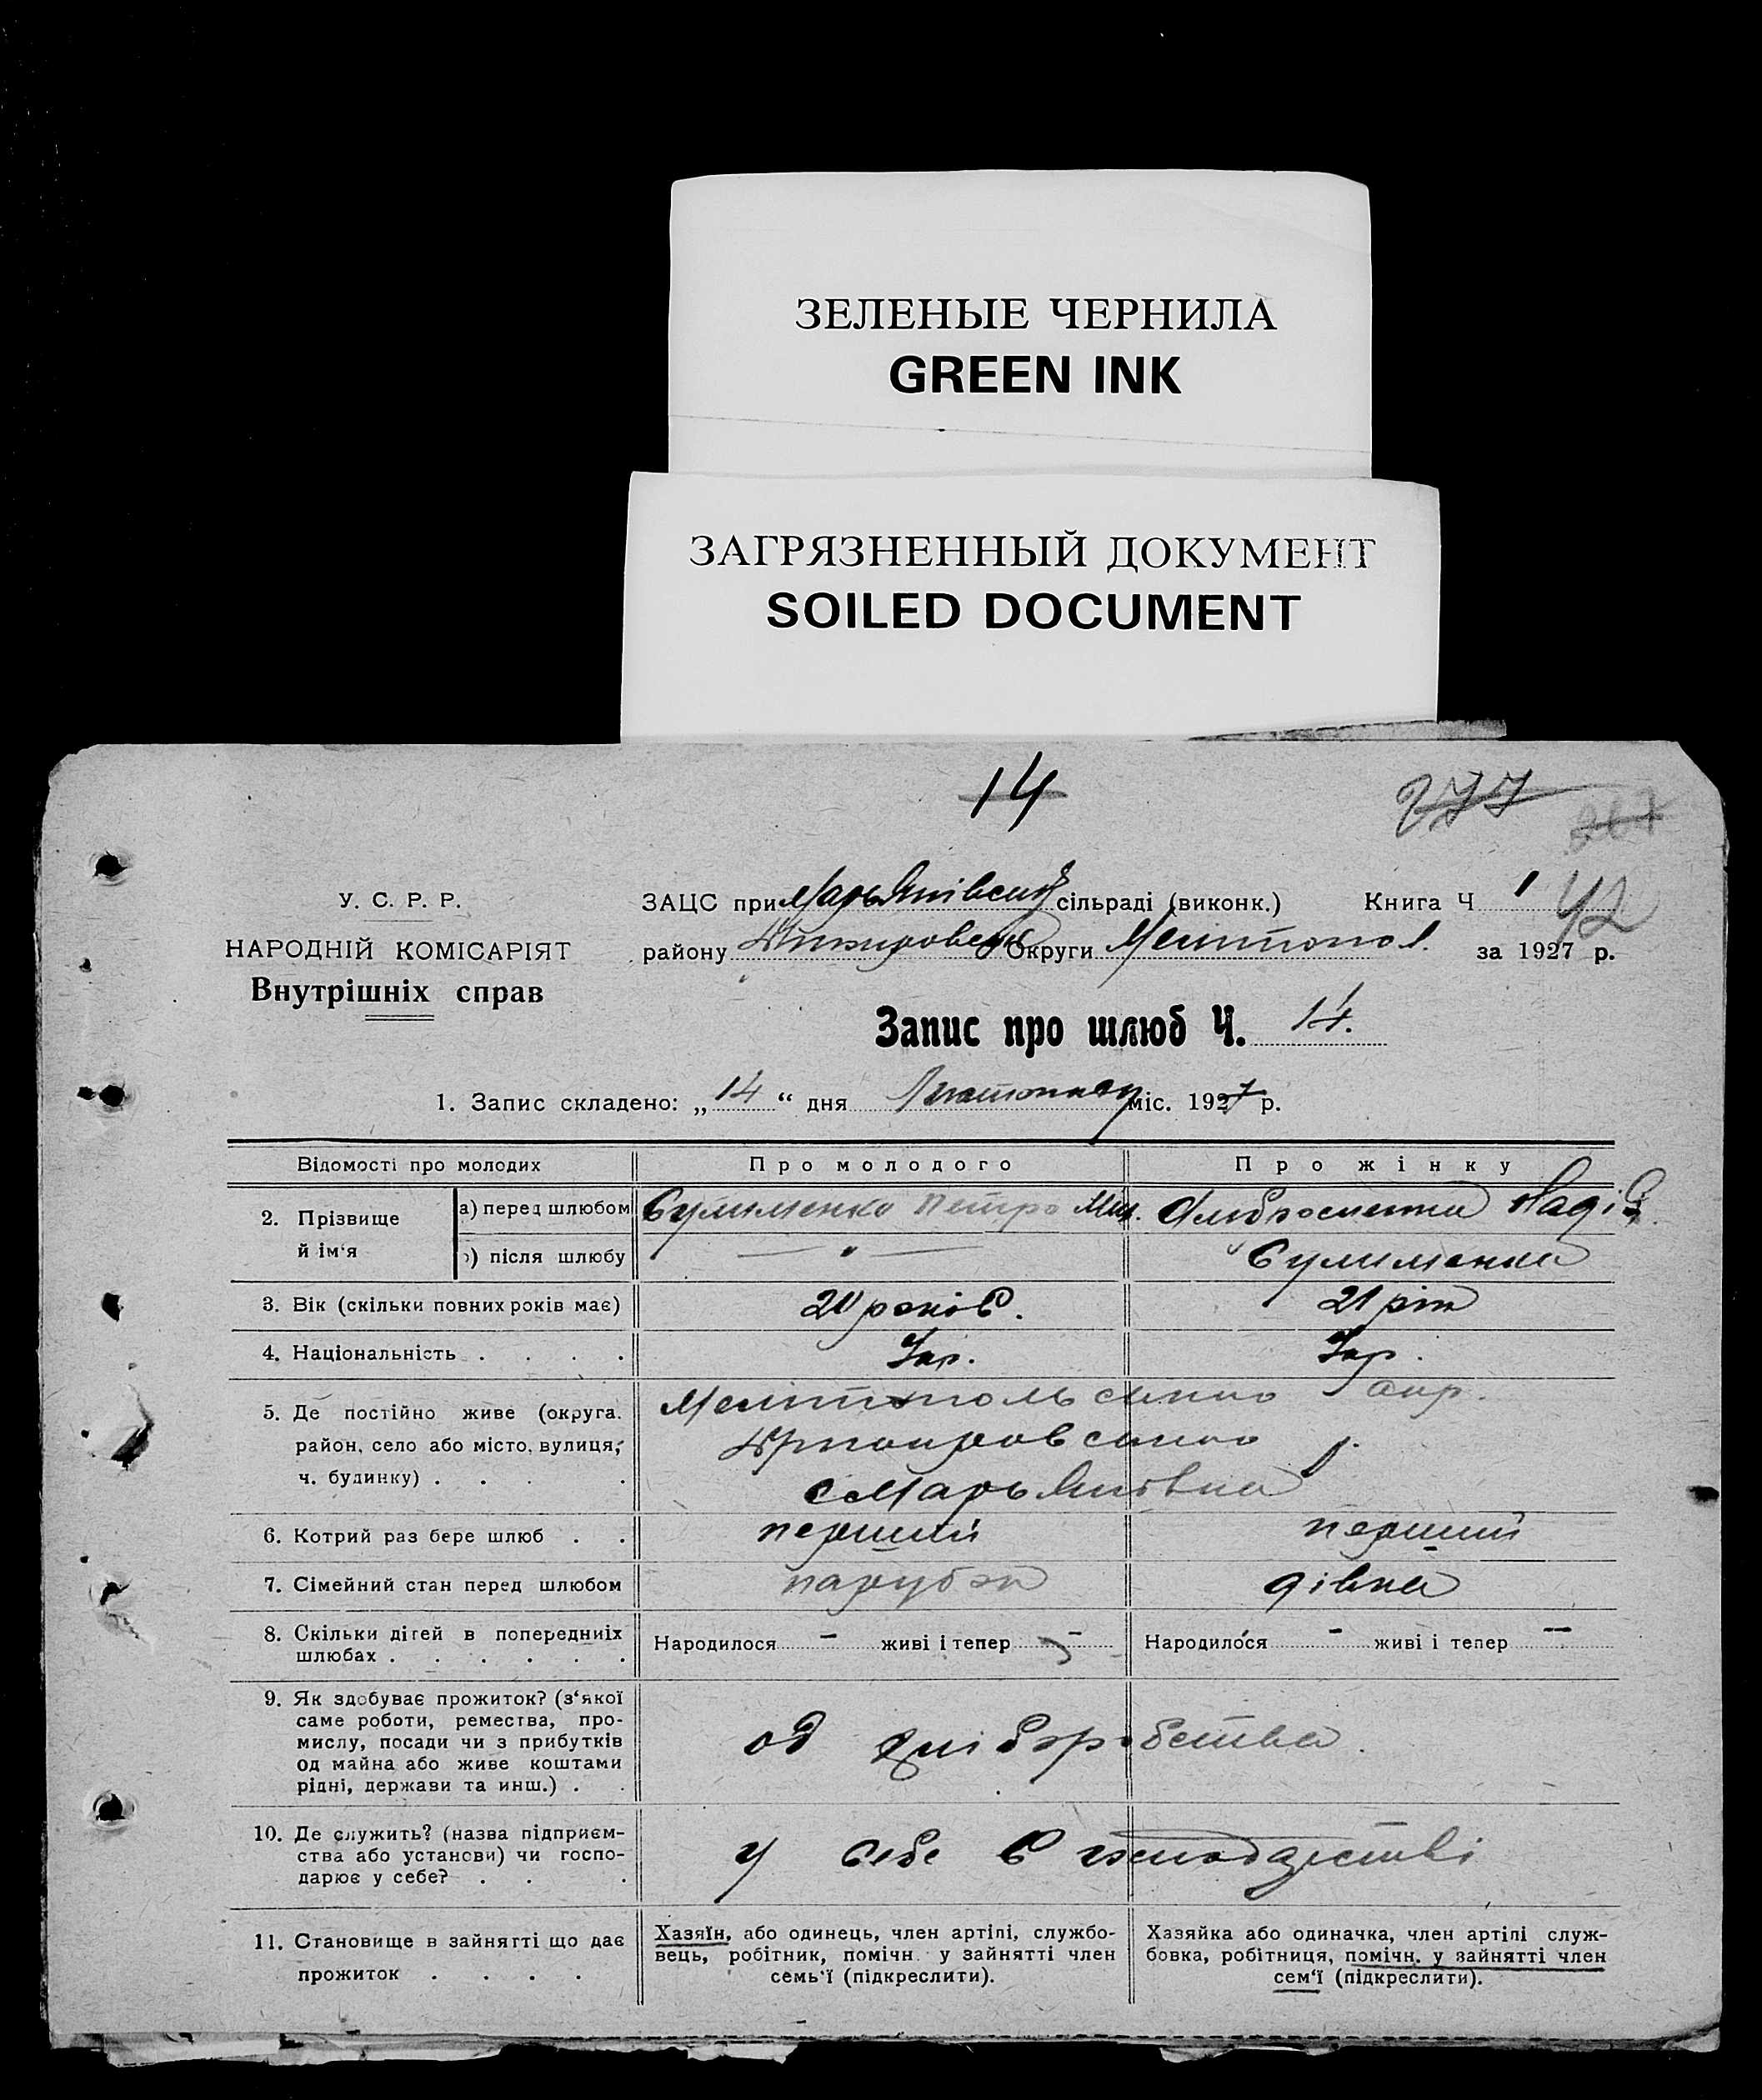 ЗЕЛЕНЫЕ ЧЕРНИЛА
GREEN INK
ЗАГРЯЗНЕННЫЙ ДОКУМЕНТ
SOILED DOCUMENT
14
277
267
У. С. Р. Р.
НАРОДНІЙ КОМІСАРІЯТ
Внутрішніх справ
ЗАЦС при Марьянівській сільраді (виконк.) Книга Ч 1
42
району округи Мелітопол. за 1927 р.
Запис про шлюб Ч. 14.
1. Запис складено: „14“ дня Листопаду міс. 1927 р.
Відомості про молодих Про молодого Про жінку
2. Прізвище й ім‘я
а) перед шлюбом Сулименко Петро Надія
б) після шлюбу — „ — Сулименко
3. Вік (скільки повних років має) 20 років. 21 рік
4. Національність . . . . Укр. Укр.
5. Де постійно живе (округа, Мелітопольською окр.
район, село або місто, вулиця, р.
ч. будинку) . . . . с Марьянівка
6. Котрий раз бере шлюб . . перший перший
7. Сімейний стан перед шлюбом парубок дівка
8. Скільки дітей в попередниіх
шлюбах . . . . . .
Народилося – живі і тепер – Народилося – живі і тепер –
9. Як здобуває прожиток? (з‘якої
саме роботи, ремества, про-
мислу, посади чи з прибутків
од майна або живе коштами
рідні, держави та инш.) . .
од хліборобства.
10. Де служить? (назва підприєм-
ства або установи) чи госпо-
дарює у себе? . . .
у себе в господарстві
11. Становище в зайнятті що дає
прожиток . . . .
Хазяїн, або одинець, член артілі, службо-
вець, робітник, помічн. у зайнятті член
семь‘ї (підкреслити).
Хазяйка або одиначка, член артілі служ-
бовка, робітниця, помічн. у зайнятті член
сем‘ї (підкреслити).